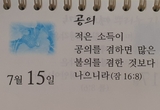 공의
적은 소득이
공의를 겸하면 많은
불의를 겸한 것보다
나으니라 (잠 16:8)
7월 15일